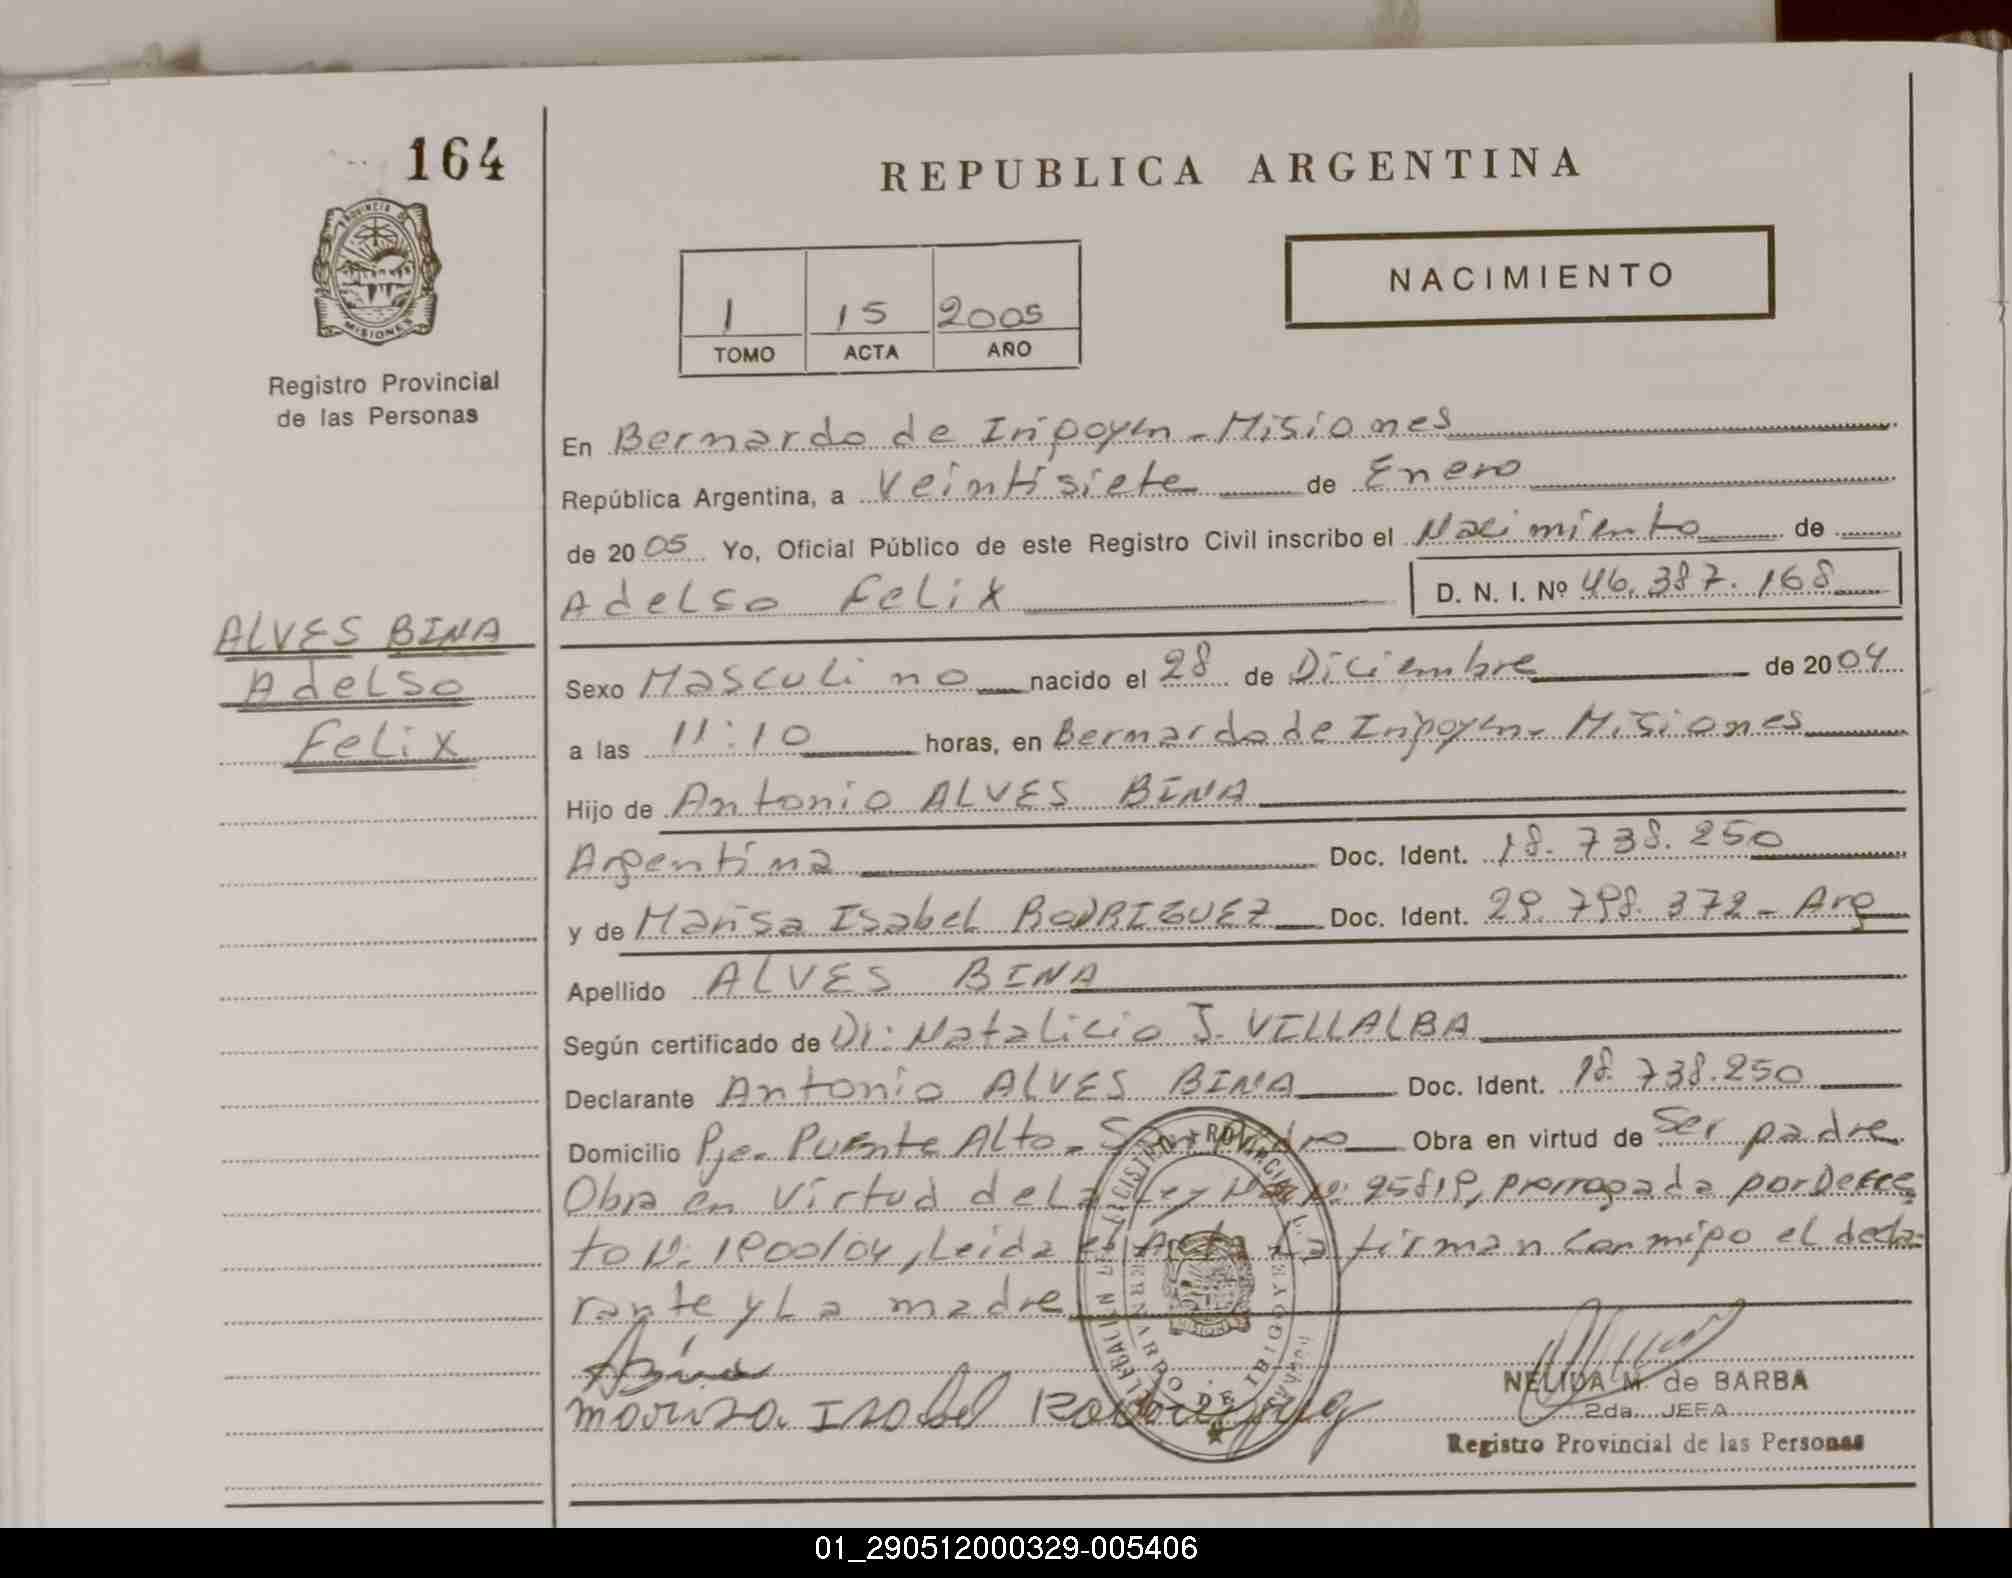 164
REPUBLICA ARGENTINA
PROVINCIA DE
MISIONES
NACIMIENTO
1 15 2005
TOMO ACTA AÑO
Registro Provincial
de las Personas
En Bernardo de Irigoyen - Misiones
República Argentina, a Veintisiete de Enero
de 2005 Yo, Oficial Público de este Registro Civil inscribo el Nacimiento de
Adelso Felix D. N. I. Nº 46.387.168
ALVES BINA
Adelso
Felix
Sexo Masculino nacido el 28 de Diciembre de 2004
a las 11:10 horas, en Bernardo de Irigoyen - Misiones
Hijo de Antonio ALVES BINA
Argentina Doc. Ident. 18.738.250
y de Marisa Isabel RODRIGUEZ Doc. Ident. 29.798.372 - Arg
Apellido ALVES BINA
Según certificado de Dr: Natalicio J. VILLALBA
Declarante Antonio ALVES BINA Doc. Ident. 18.738.250
Domicilio Pje. Puente Alto - San Pedro Obra en virtud de Ser padre
Obra en Virtud de La Ley Nac Nº: 25819, prorrogada por Decre
to Nº: 1900/04, Leida el Acta La firman conmigo el decla-
rante y La madre
Bina
Marisa Isabel Rodriguez
NELIDA M. de BARBA
2da. JEFA
Registro Provincial de las Personas
REGISTRO PROVINCIAL DE LAS
BERNARDO DE IRIGOYEN
MISIONES
01_290512000329-005406